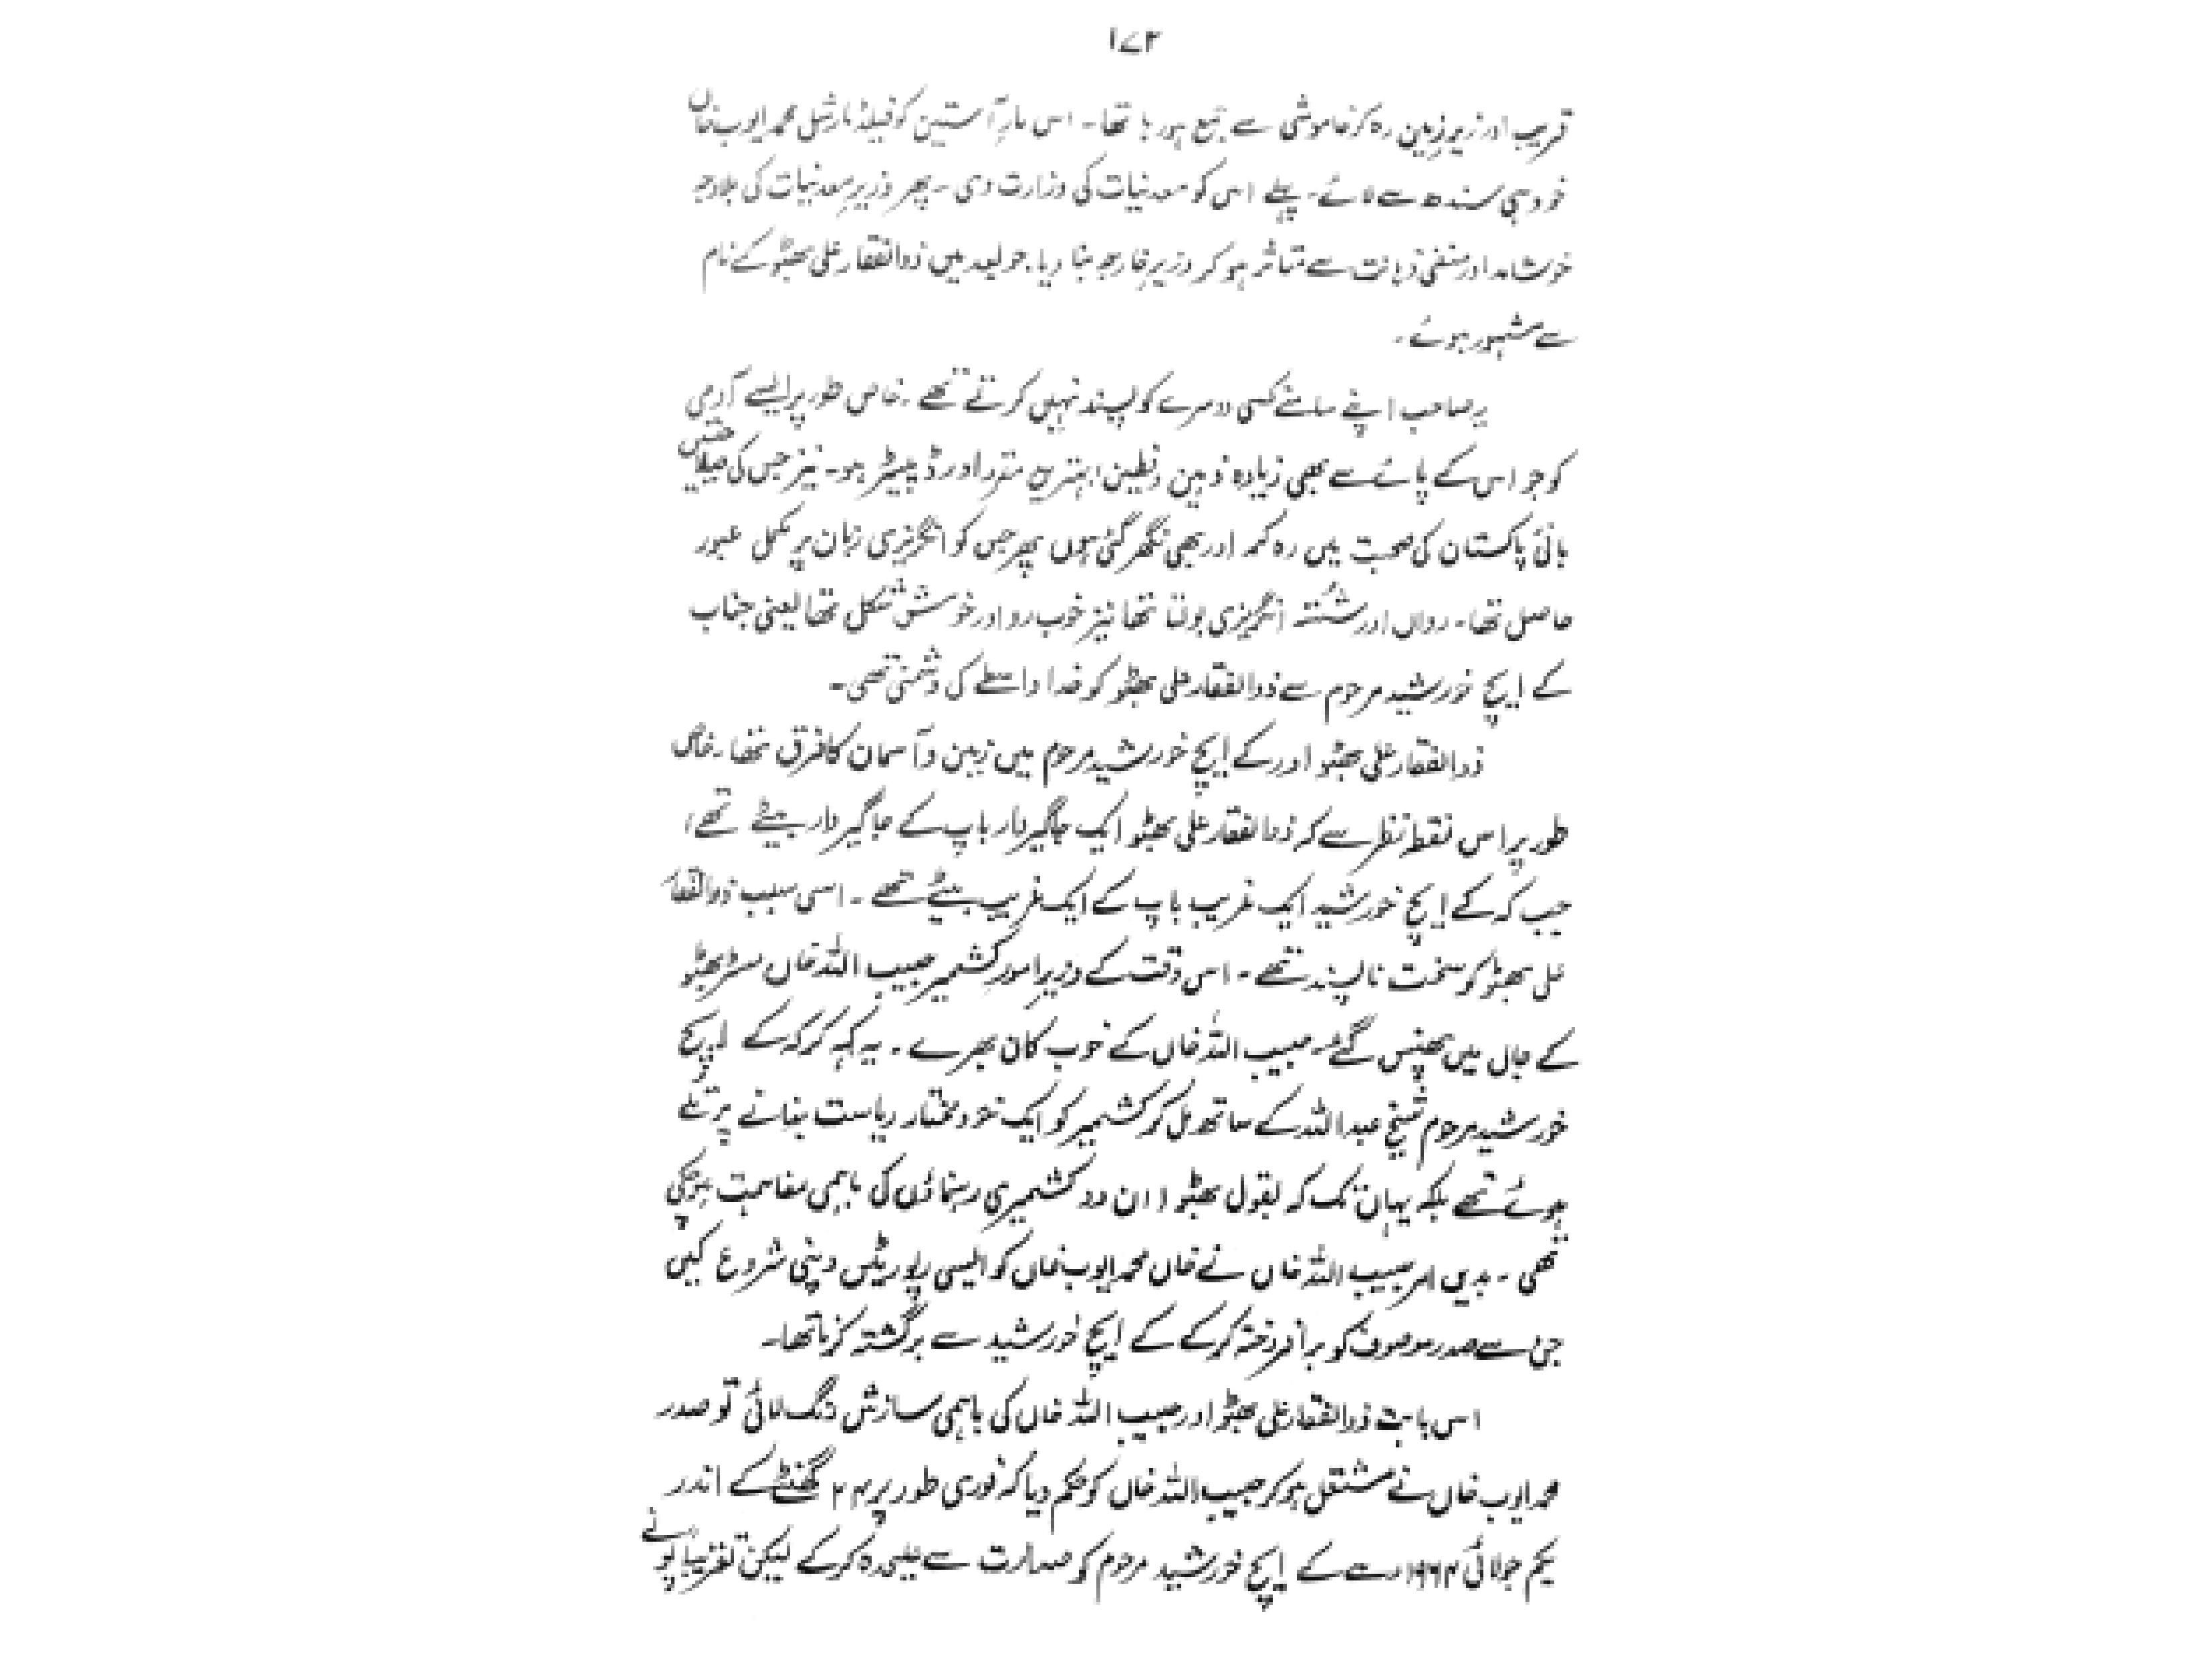 ۱۷۲
قریب اور زیرِ زمین رہ کر خاموشی سے جمع ہو رہا تھا۔ اس مارِ آستین کو فیلڈ مارشل محمد ایوب خاں
خود ہی سندھ سے لائے۔ پہلے اس کو معدنیات کی وزارت دی۔ پھر وزیرِ معدنیات کی بلاوجہ
خوشامد اور منفی ذہانت سے متاثر ہو کر وزیرِ خارجہ بنا دیا۔ جو بعد میں ذوالفقار علی بھٹو کے نام
سے مشہور ہوئے۔
یہ صاحب اپنے سامنے کسی دوسرے کو پسند نہیں کرتے تھے۔ خاص طور پر ایسے آدمی
کو جو اس کے پائے سے بھی زیادہ ذہین و فطین، بہترین مقرر اور ڈیبیٹر ہو۔ نیز جس کی صلاحیتیں
بانیٔ پاکستان کی صحبت میں رہ کر اور بھی نکھر گئی ہوں پھر جس کو انگریزی زبان پر مکمل عبور
حاصل تھا۔ رواں اور شُستہ انگریزی بولتا تھا نیز خوب رو اور خوش شکل تھا یعنی جناب
کے ایچ خورشید مرحوم سے ذوالفقار علی بھٹو کو خدا واسطے کی دشمنی تھی۔
ذوالفقار علی بھٹو اور کے ایچ خورشید مرحوم میں زمین و آسمان کا فرق تھا۔ خاص
طور پر اس نقطۂ نظر سے کہ ذوالفقار علی بھٹو ایک جاگیردار باپ کے جاگیردار بیٹے تھے،
جب کہ کے ایچ خورشید ایک غریب باپ کے ایک غریب بیٹے تھے۔ اسی سبب ذوالفقار
علی بھٹو کو سخت ناپسند تھے۔ اس وقت کے وزیرِ امورِ کشمیر حبیب اللہ خاں مسٹر بھٹو
کے جال میں پھنس گئے۔ حبیب اللہ خاں کے خوب کان بھرے۔ یہ کہہ کر کہ کے ایچ
خورشید مرحوم شیخ عبداللہ کے ساتھ مل کر کشمیر کو ایک خود مختار ریاست بنانے پر تلے
ہوئے تھے بلکہ یہاں تک کہ بقول بھٹو ان دو کشمیری رہنماؤں کی باہمی مفاہمت ہو چکی
تھی۔ بدیں امر حبیب اللہ خاں نے خاں محمد ایوب خاں کو ایسی رپورٹیں دینی شروع کیں
جن سے صدر موصوف کو برافروختہ کر کے کے ایچ خورشید سے برگشتہ کرنا تھا۔
اس بابت ذوالفقار علی بھٹو اور حبیب اللہ خاں کی باہمی سازش رنگ لائی تو صدر
محمد ایوب خاں نے مشتعل ہو کر حبیب اللہ خاں کو حکم دیا کہ فوری طور پر ۲۴ گھنٹے کے اندر
یکم جولائی ۱۹۶۴ء سے کے ایچ خورشید مرحوم کو صدارت سے علیحدہ کر کے لیکن تقریباً پونے